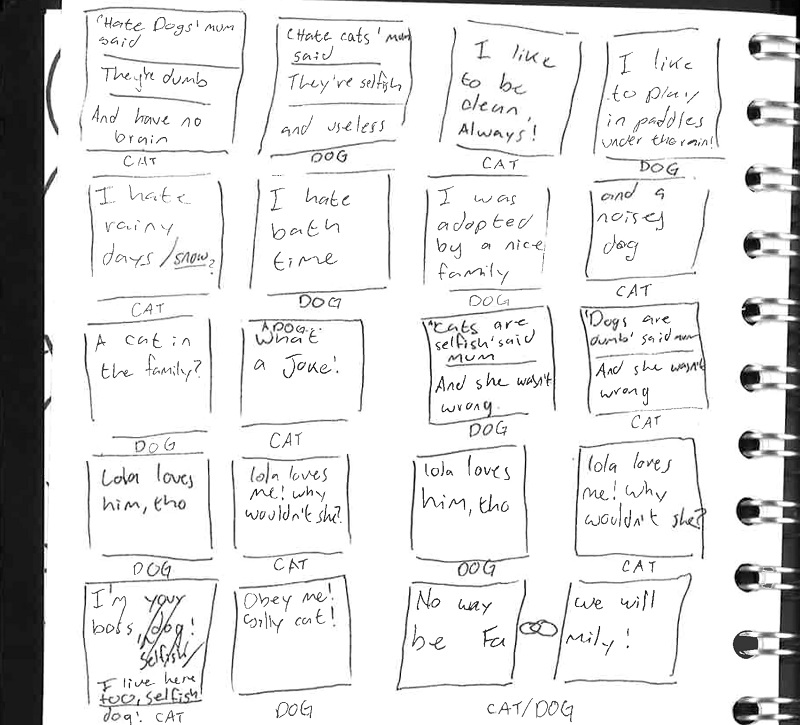 'Hate Dogs' mum
said
They're dumb
And have no
brain
CAT
'Hate cats' mum
said
They're selfish
and useless
DOG
I like
to be
clean,
Always!
CAT
I like
to play
in paddles
under the rain!
DOG
I hate
rainy
days/snow?
CAT
I hate
bath
time
DOG
I was
adopted
by a nice
family
DOG
and a
noisey
dog
CAT
A cat in
the family?
DOG
A DOG.
What
a Joke!
CAT
"Cats are
selfish' said
mum
And she wasn't
wrong.
DOG
'Dogs are
dumb' said mum
And she wasn't
wrong
CAT
Lola loves
him, tho
DOG
lola loves
me! why
wouldn't she?
CAT
lola loves
him, tho
DOG
lola loves
me! why
wouldn't she?
CAT
I'm your
boss, dog!
selfish
I live here
too, selfish
dog! CAT
Obey me!
Silly cat!
DOG
No way
be Fa
we will
mily!
CAT/DOG